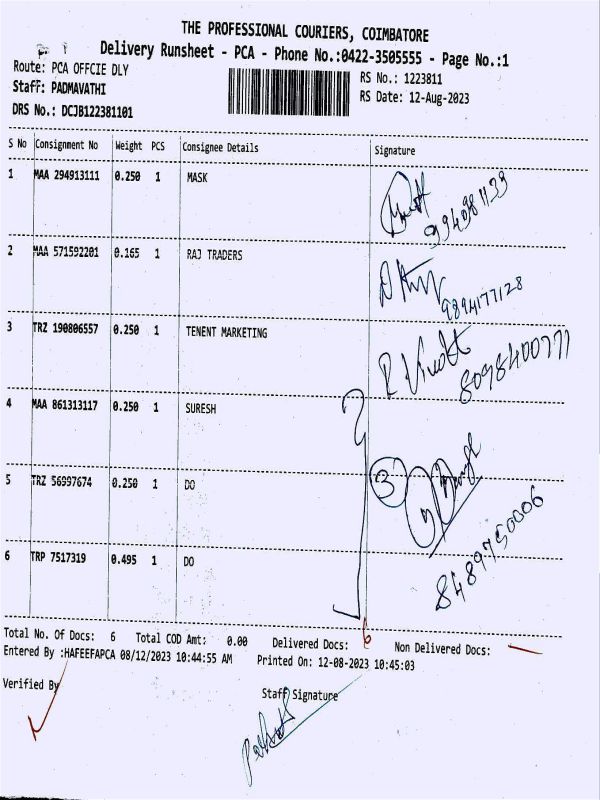 THE PROFESSIONAL COURIERS, COIMBATORE
Delivery Runsheet - PCA - Phone No.:0422-3505555 - Page No.:1
Route: PCA OFFCIE DLY
RS No.: 1223811
Staff: PADMAVATHI
RS Date: 12-Aug-2023
DRS No.: DCJB122381101
S No Consignment No Weight PCS Consignee Details Signature
1 MAA 294913111 0.250 1 MASK
2 MAA 571592201 0.165 1 RAJ TRADERS
9894177128
3 TRZ 190806557 0.250 1 TENENT MARKETING
R Vinoth
8098400771
4 MAA 861313117 0.250 1 SURESH
5 TRZ 56997674 0.250 1 DO
3
6 TRP 7517319 0.495 1 DO
8489750006
Total No. Of Docs: 6 Total COD Amt: 0.00 Delivered Docs: 6 Non Delivered Docs:
Entered By :HAFEEFAPCA 08/12/2023 10:44:55 AM Printed On: 12-08-2023 10:45:03
Verified By Staff Signature